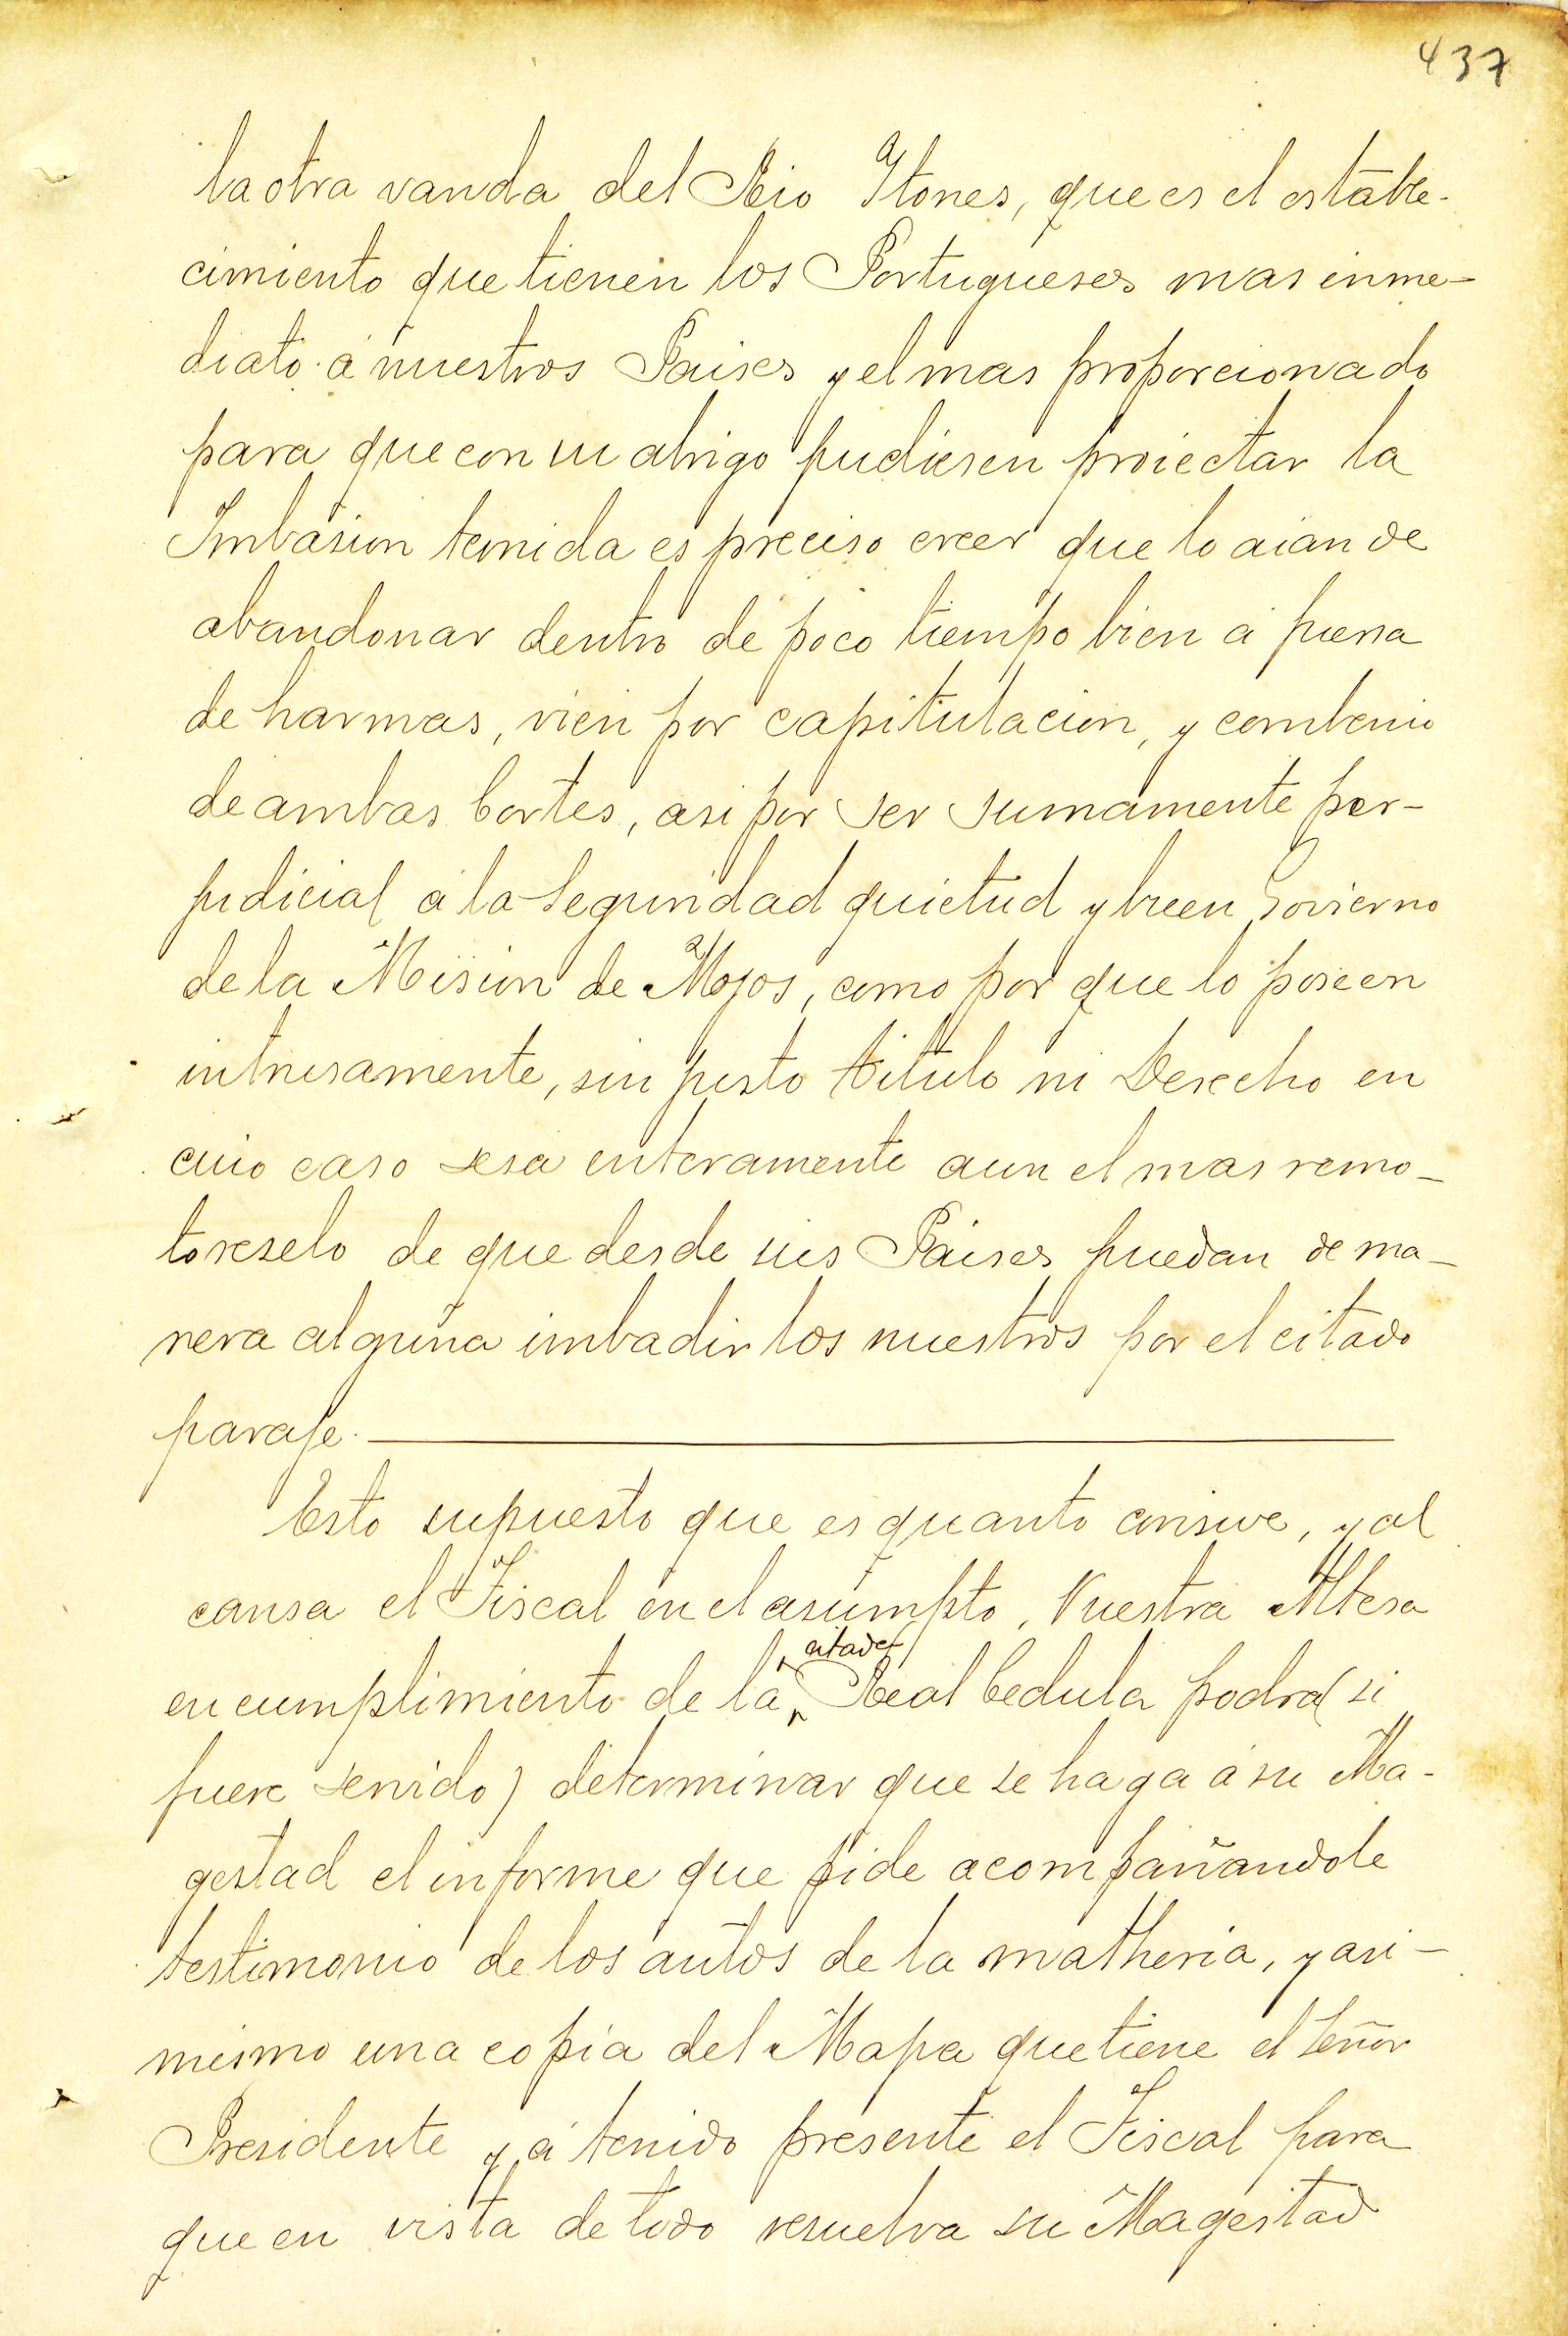 437
la otra vanda del Rio Ytones, que es el estable-
cimiento que tienen los Portugueses mas inme-
diato á nuestros Paises y el mas proporcionado
para que con su abrigo pudiesen proiectar la
Imbasion temida es preciso creer que lo aian de
abandonar dentro de poco tiempo bien á fuersa
de harmas, vien por capitulacion, y combenio
de ambas Cortes, asi por ser sumamente per-
judicial á la Seguridad quietud y buen Govierno
de la Mision de Mojos, como por que lo poseen
intrusamente, sin justo titulo ni Derecho en
cuio caso sesa enteramente aun el mas remo-
to reselo de que desde sus Paises puedan de ma-
nera alguna imbadir los nuestros por el citado
paraje.
Esto supuesto que es quanto consive, y al
cansa el Fiscal en el asumpto, Vuestra Altesa
en cumplimiento de la citada Real Cedula podra (si
fuere servido) determinar que se haga á su Ma-
gestad el informe que pide acompañandole
testimonio de los autos de la matheria, y asi-
mismo una copia del Mapa que tiene el Señor
Presidente y á tenido presente el Fiscal para
que en vista de todo resuelva su Magestad